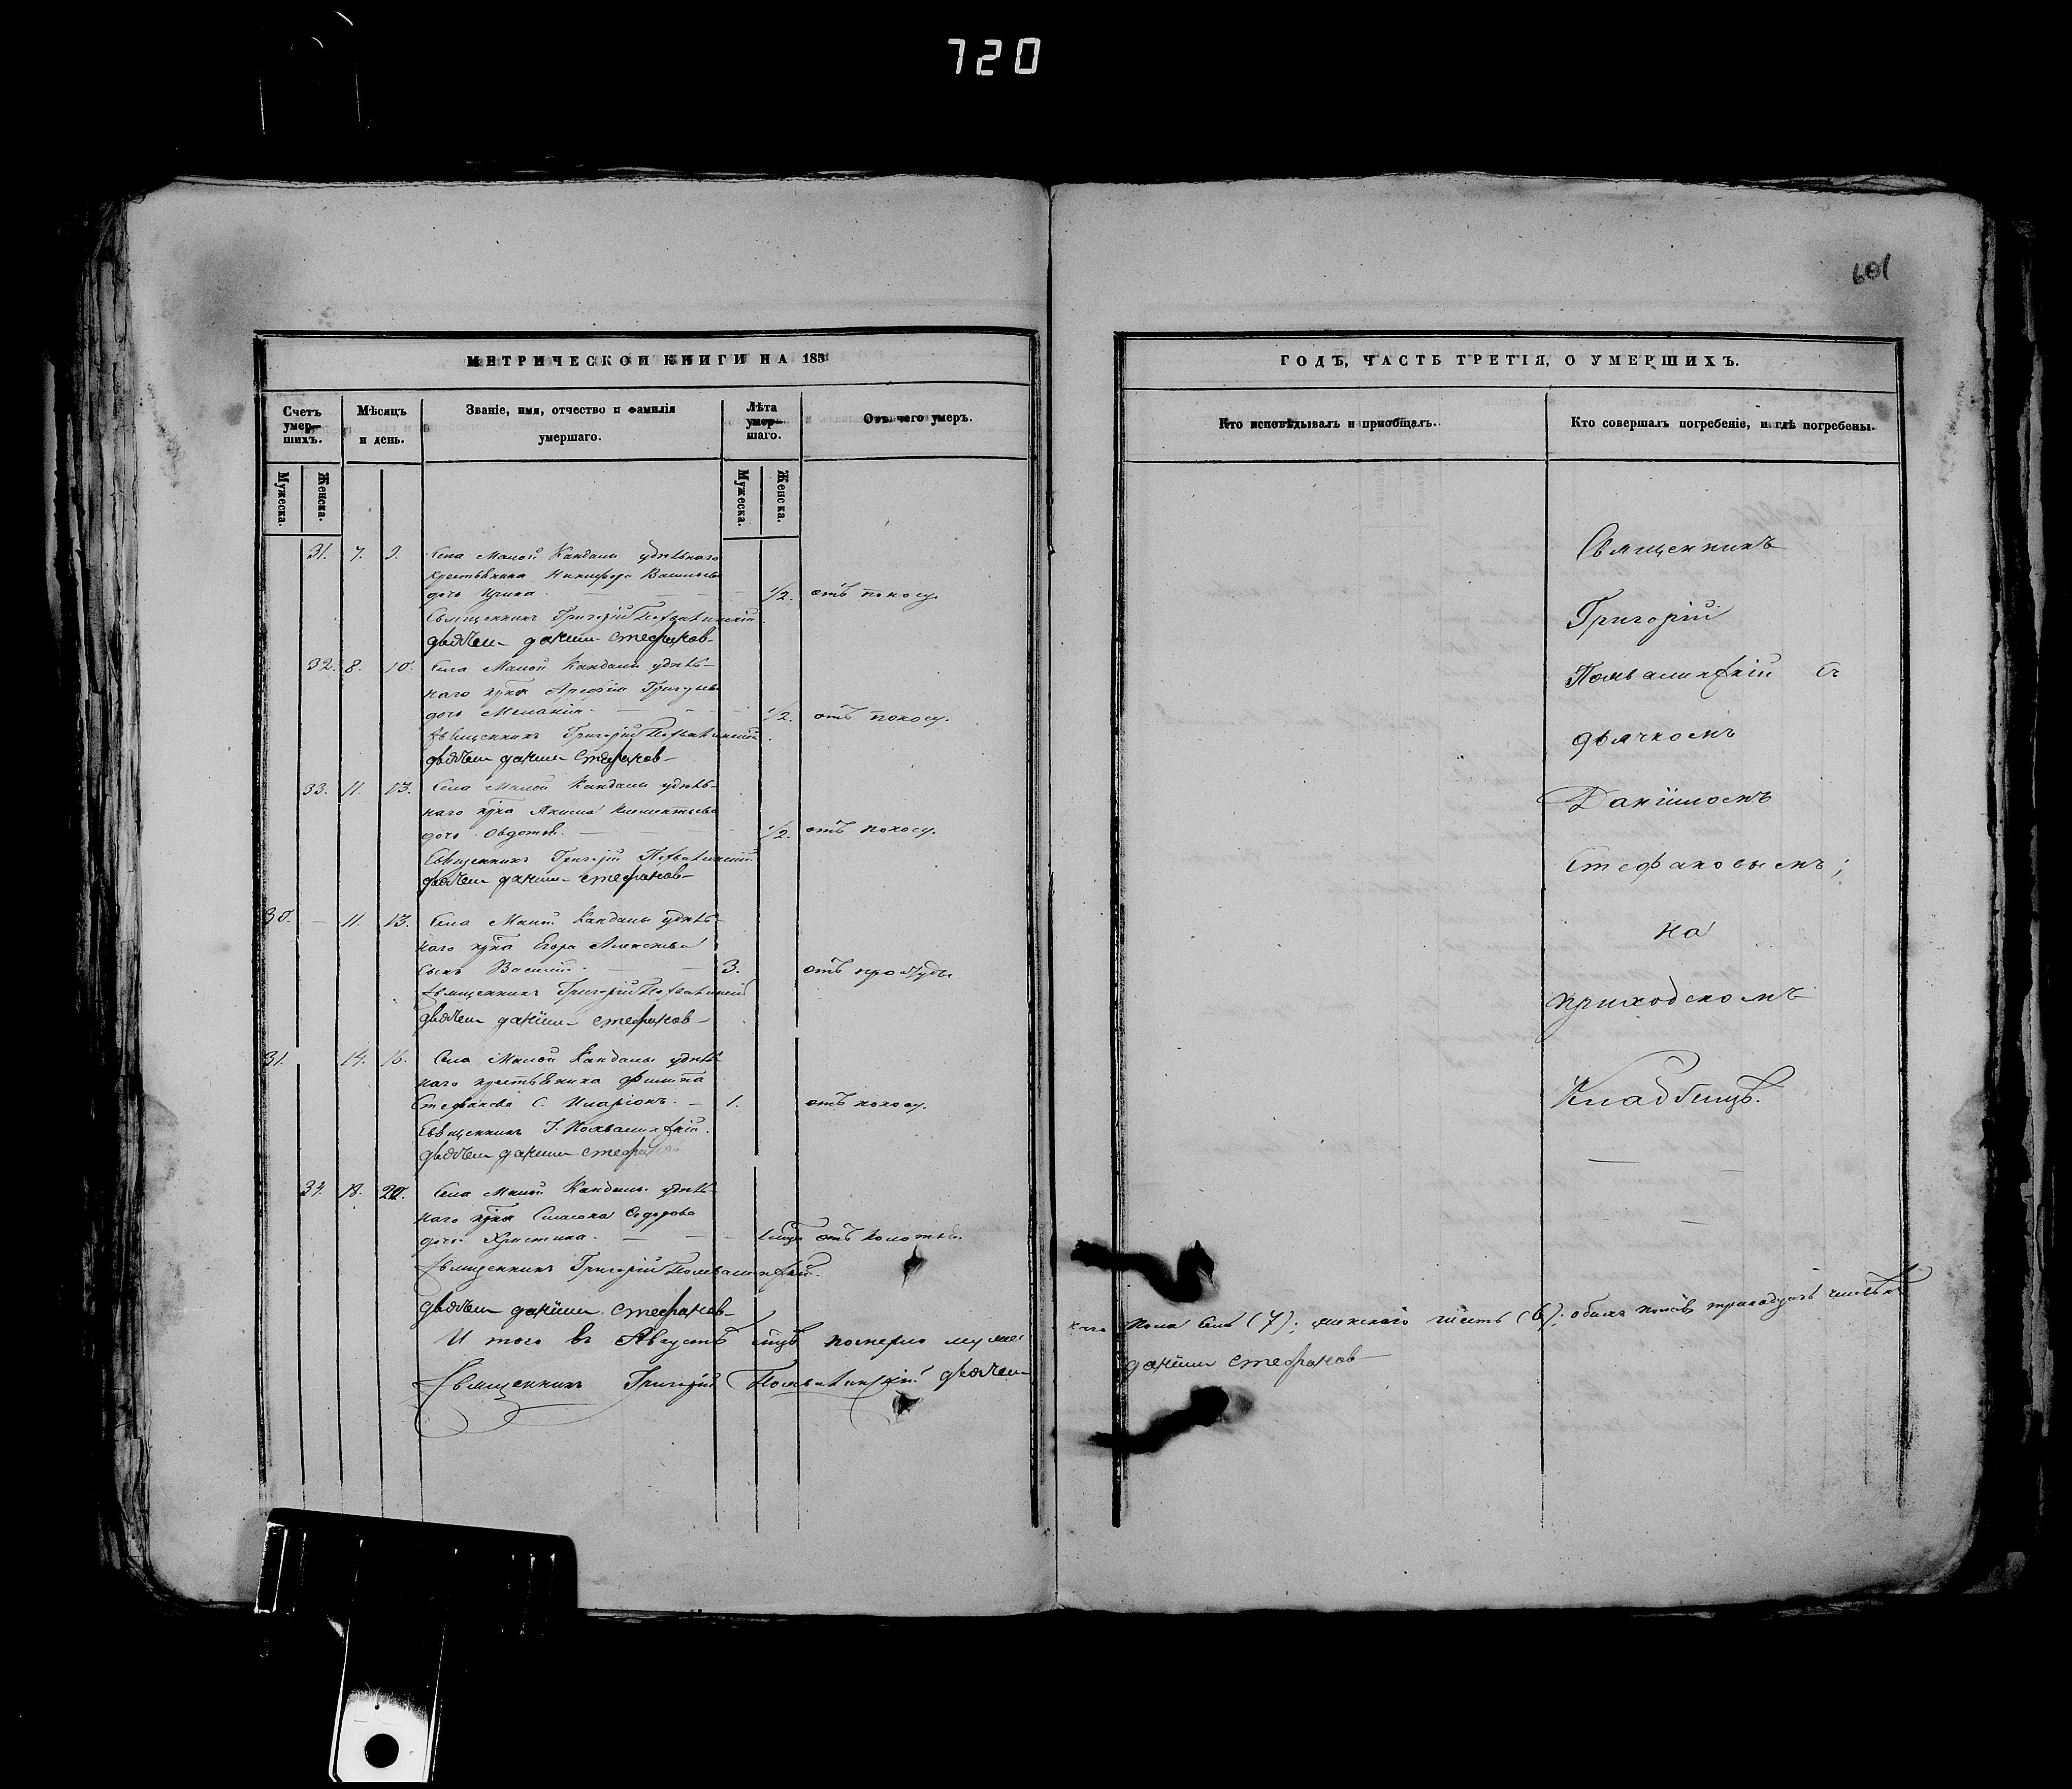 720
601
МЕТРИЧЕСКОЙ КНИГИ НА 183
Счетъ умер-шихъ.
Мѣсяцъ и день.
Званіе, имя, отчество и фамилія умершаго.
Лѣта умер-шаго.
Отъ чего умеръ.
Мужеска.
Женска.
Мужеска.
Женска.
31. 7. 9. Села Малой Кандалы удѣльнаго
крестьянина Никифора Васильева
дочь Ирина. 1/2. отъ поносу.
Священникъ Григорій Похвалинскій
дьячекъ Данiилъ Стефановъ
32. 8. 10. Села Малой Кандалы удѣль-
наго крна Григорьева
дочь Меланія. 1/2. отъ поносу.
Священникъ Григорій Похвалинскій
дьячекъ Данiилъ Стефановъ
33. 11. 13. Села Малой Кандалы удѣль-
наго крна Акима Климентьева
дочь Овдотья. 1/2. отъ поносу.
Священникъ Григорій Похвалинскій
дьячекъ Данiилъ Стефановъ
30. – 11. 13. Села Малой Кандалы удѣль-
наго крна Егора Алексѣева
сынъ Василій. 3. отъ простуды
Священникъ Григорій Похвалинскій
дьячекъ Данiилъ Стефановъ
31. 14. 16. Села Малой Кандалы удѣль-
наго крестьянина Филипа
Стефанова с. Иларіонъ. 1. отъ поносу.
Священникъ Г. Похвалинскій.
дьячекъ Данiилъ Стефановъ
34. 18. 20. Села Малой Кандалы удѣль-
наго крна Сидорова
дочь Христина. отъ колотья.
Священникъ Григорій Похвалинскій.
дьячекъ Данiилъ Стефановъ
И того въ Августѣ мцѣ померло муже
Священникъ Григорій Похвалинскій дьячекъ
ГОДЪ, ЧАСТЬ ТРЕТІЯ, О УМЕРШИХЪ.
Кто исповѣдывалъ и пріобщалъ.
Кто совершалъ погребеніе, и гдѣ погребены.
Священникъ
Григорій
Похвалинскій съ
дьячкомъ
Даніиломъ
Стефановымъ;
на
приходскомъ
Кладбищѣ.
каго пола семь (7); женскаго шесть (6); обоихъ половъ тринадцать человѣкъ
Данiилъ Стефановъ